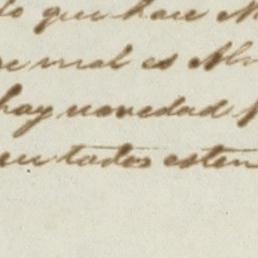 lo que hace
mal es
hay novedad
todos esten